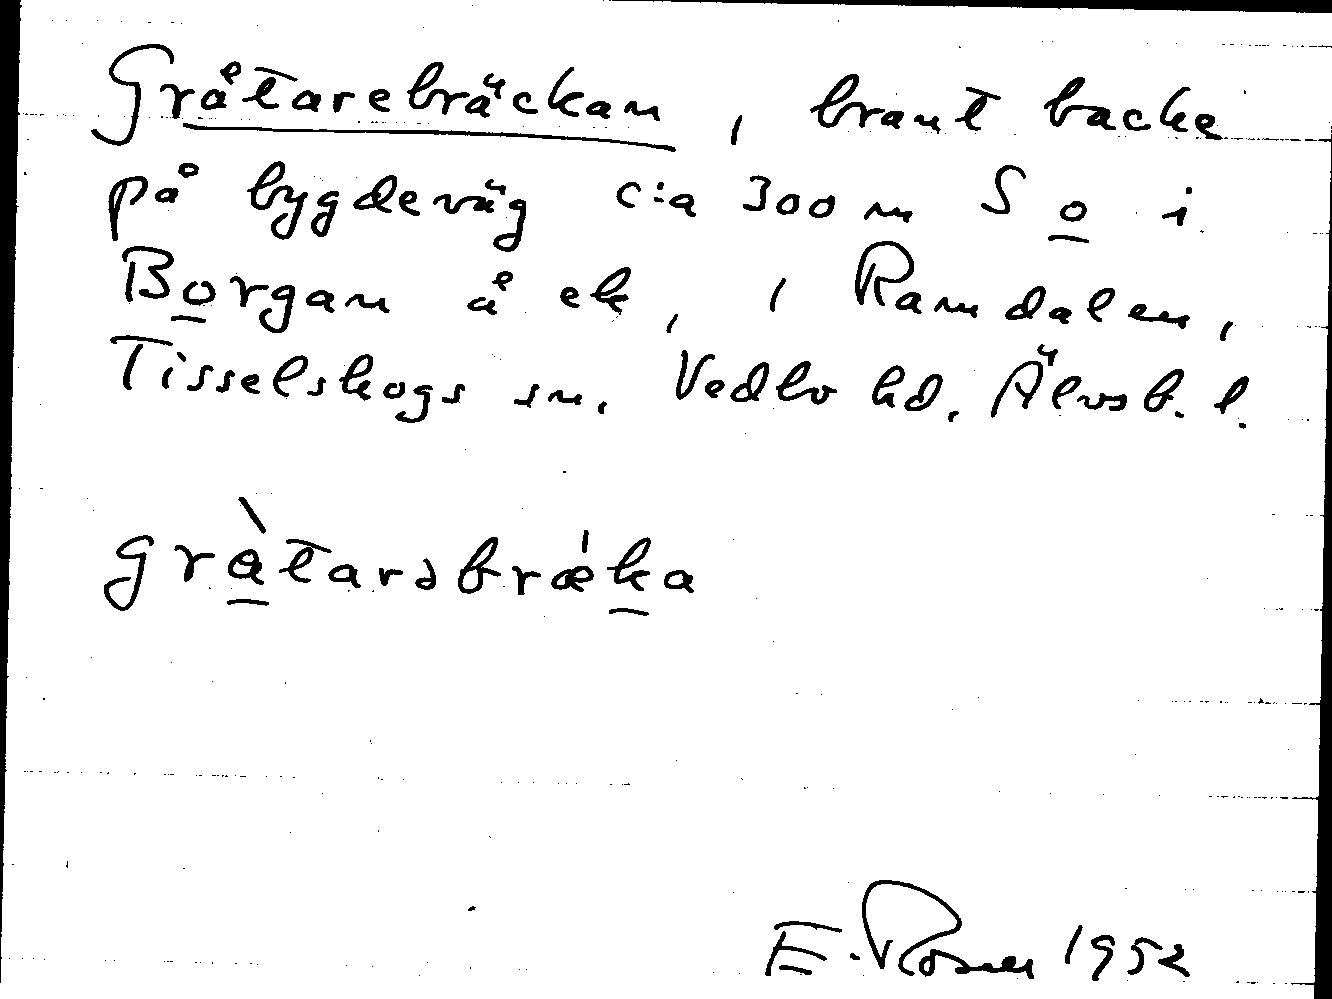 Gråtarebräckan, brant backe
på bygdeväg c:a 300 m S o i
Borgan å ek, i Ramdalen,
Tisselskogs sn. Vedbo hd. Älvsb. l.
gràtarəbrǽka
E. Rosner 1952